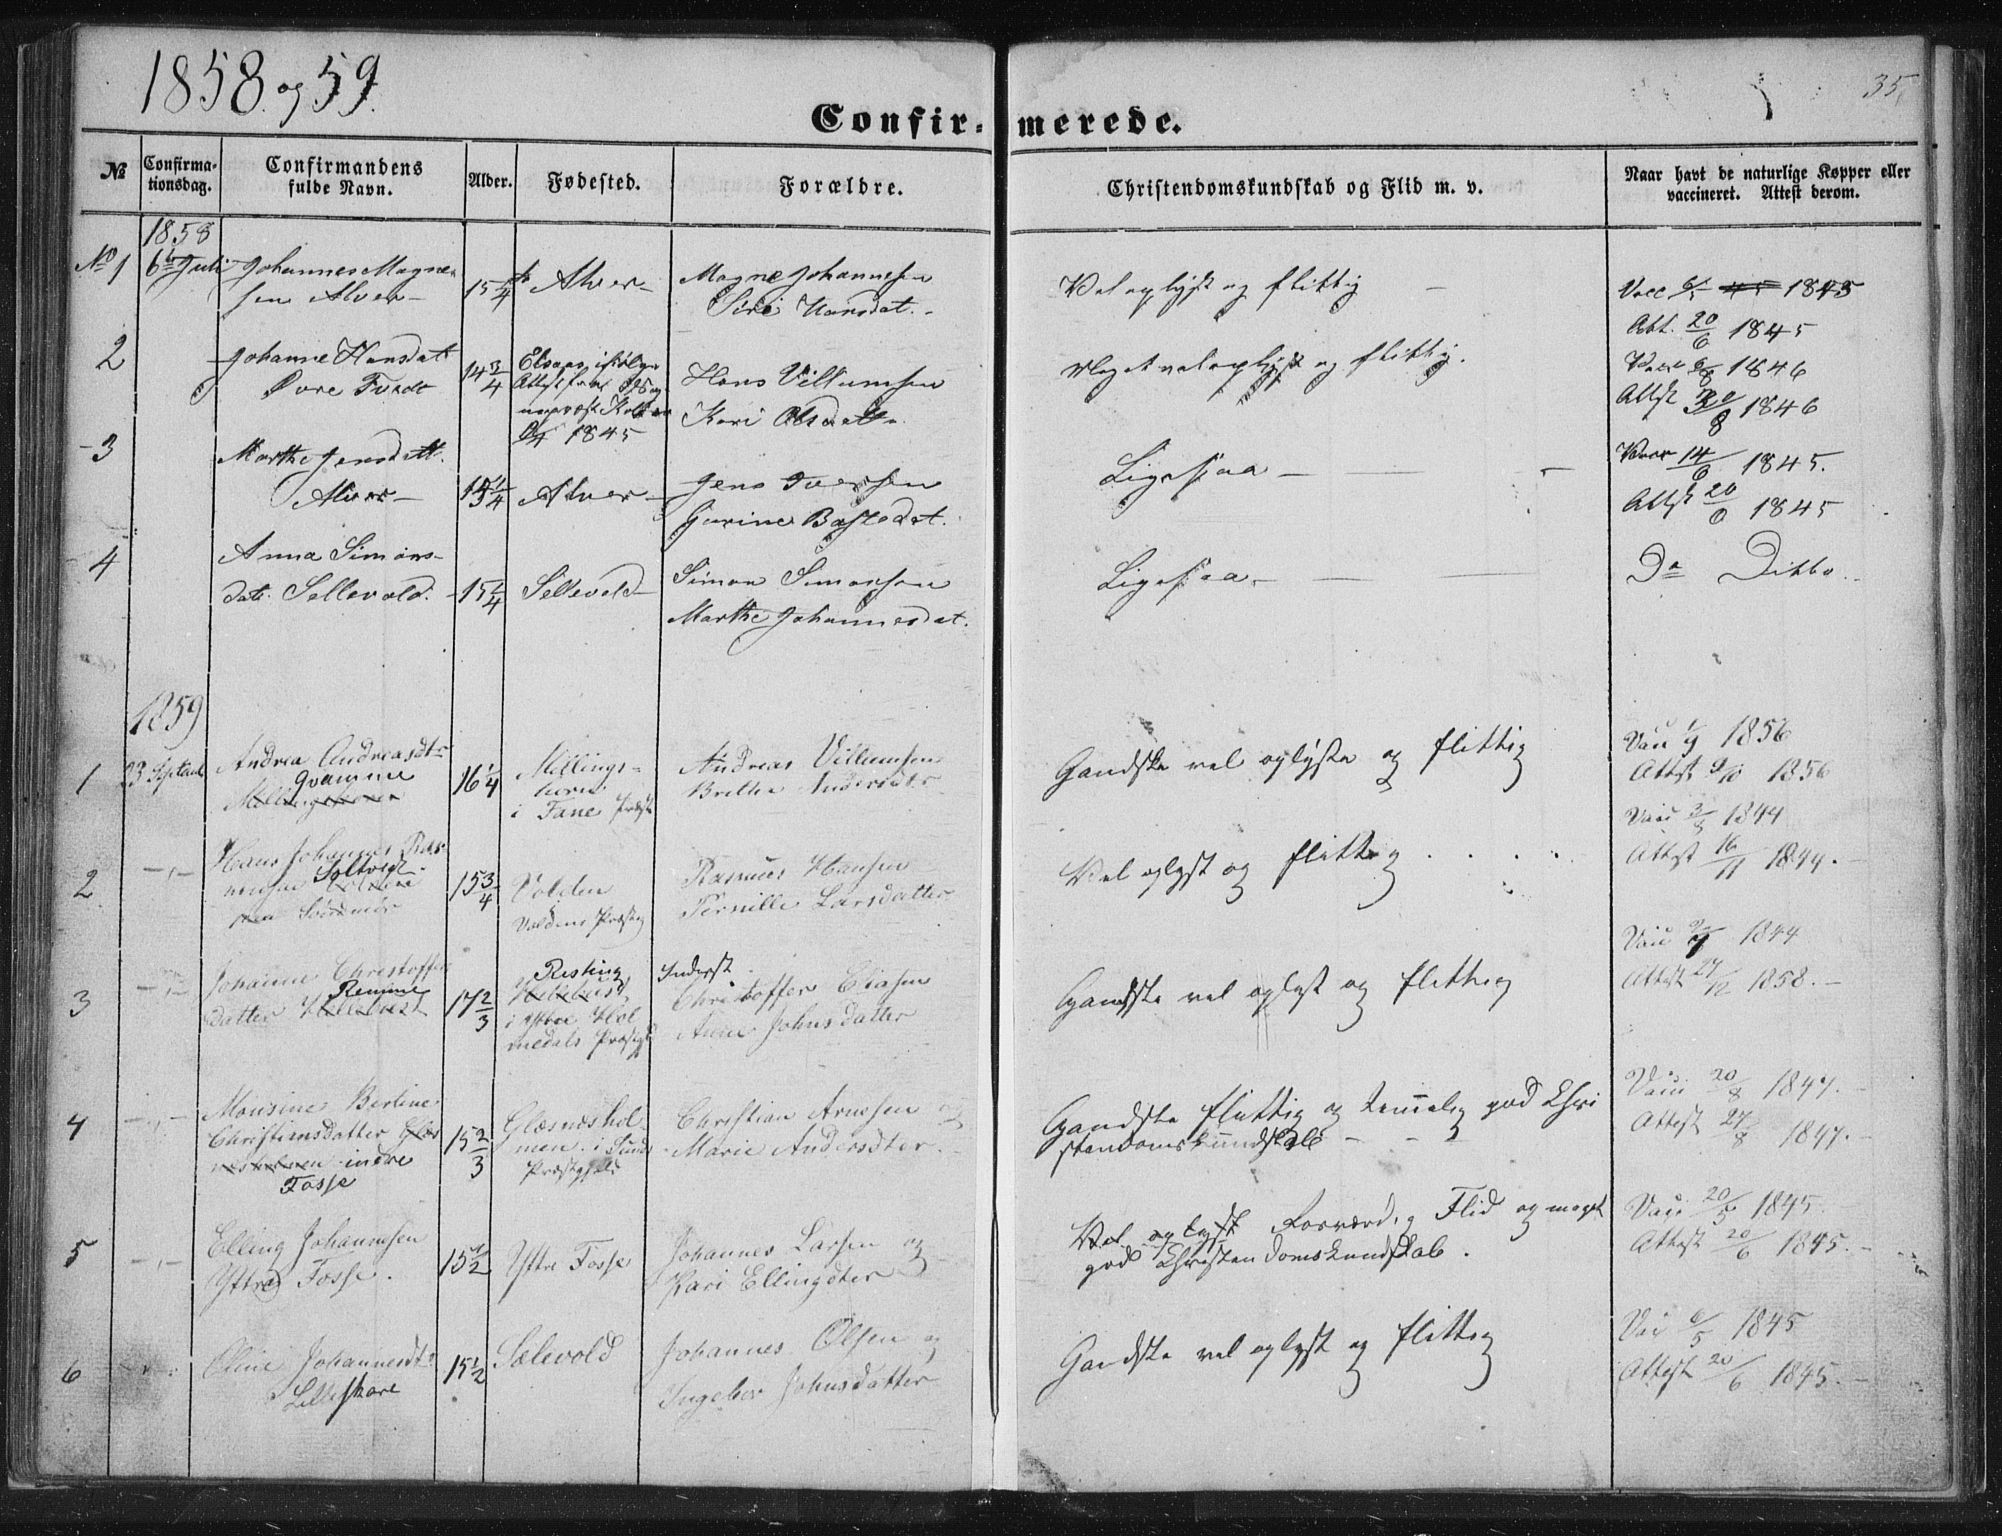 1858 og 59.
35.
Confir-merede.
№
Confirma-
tionsdag.
Confirmandens
fulde Navn.
Alder.
Fødested.
Forældre.
Christendomskundskab og Flid m. v.
Naar havt de naturlige Kopper eller
vaccineret. Attest derom.
1858
№ 1
6te Juli
Johannes Magne-
sen Alver
15 1/4
Alver
Magne Johannesen
Siri Hansdat.
Vel oplyst og flittig
Vacc 1845
Att. 20/6 1845
2
Johanne Hansdatt
Øvre Tvedt
14 3/4
Attest fra
1845
Hans Villumsen
Kari Olsdatt.
Meget vel oplyst og flittig.
1846
Attest 1846
3
Marthe Jensdatt.
Alver
Alver
Jens Iversen
Gurine Bastedat.
Ligesaa
Vacc 14/6 1845.
Attest 20/6 1845
4
Anna Simons-
dat. Sellevold.
15 1/4
Sellevold
Simon Simonsen
Marthe Johannesdat.
Ligesaa
Do Ditto
1859
1
23 Septemb
Andrea Andreasdtr
Qvamme
16 1/4
Millings-
i Fane Præst
Andreas Villumsen
Brithe Andersdtr
Gandske vel oplyst og flittig
Vacc 1856
Attest 9/10 1856
2
Hans Johannes Ras-
musen Soltvedt
Søndmør
15 3/4
Volden
Voldens Præstegj
Rasmus Hansen
Pernille Larsdatter
Vel oplyst og flittig
Vacc 1844
Attest 16/11 1844.
3
Johanne Christoffer
datter Remme
17 2/3
Risting
i Ytre Hol
medals Præstgjd
Inderst
Christoffer Eliasen
Anne Johnsdatter
Gandske vel oplyst og flittig
Vacc 1844
Attest 27/12 1858.
4
Monsine Bertine
Christiansdatter Glæs
nesholmen indre
Fosse
15 2/3
Glæsneshol-
men i Sunds
Præstgjeld
Christian Arnesen og
Marie Andersdter.
Gandske flittig og temmelig god Chri
stendomskundskab
Vacc 20/8 1847.
Attest 27/8 1847.
5
Elling Johannesen
Yttre Fosse.
15 1/2
Yttre Fosse
Johannes Larsen og
Kari Ellingdter
Vel oplyst Rosværdig Flid og meget
god Christendomskundskab.
Vacc 20/5 1845.
Attest 20/6 1845.
6
Oline Johannesdt
Lilleskare
15 1/2
Sælevold
Johannes Olsen og
Ingebor Johnsdatter
Gandske vel oplyst og flittig
Vac 6/5 1845
Attest 20/6 1845.